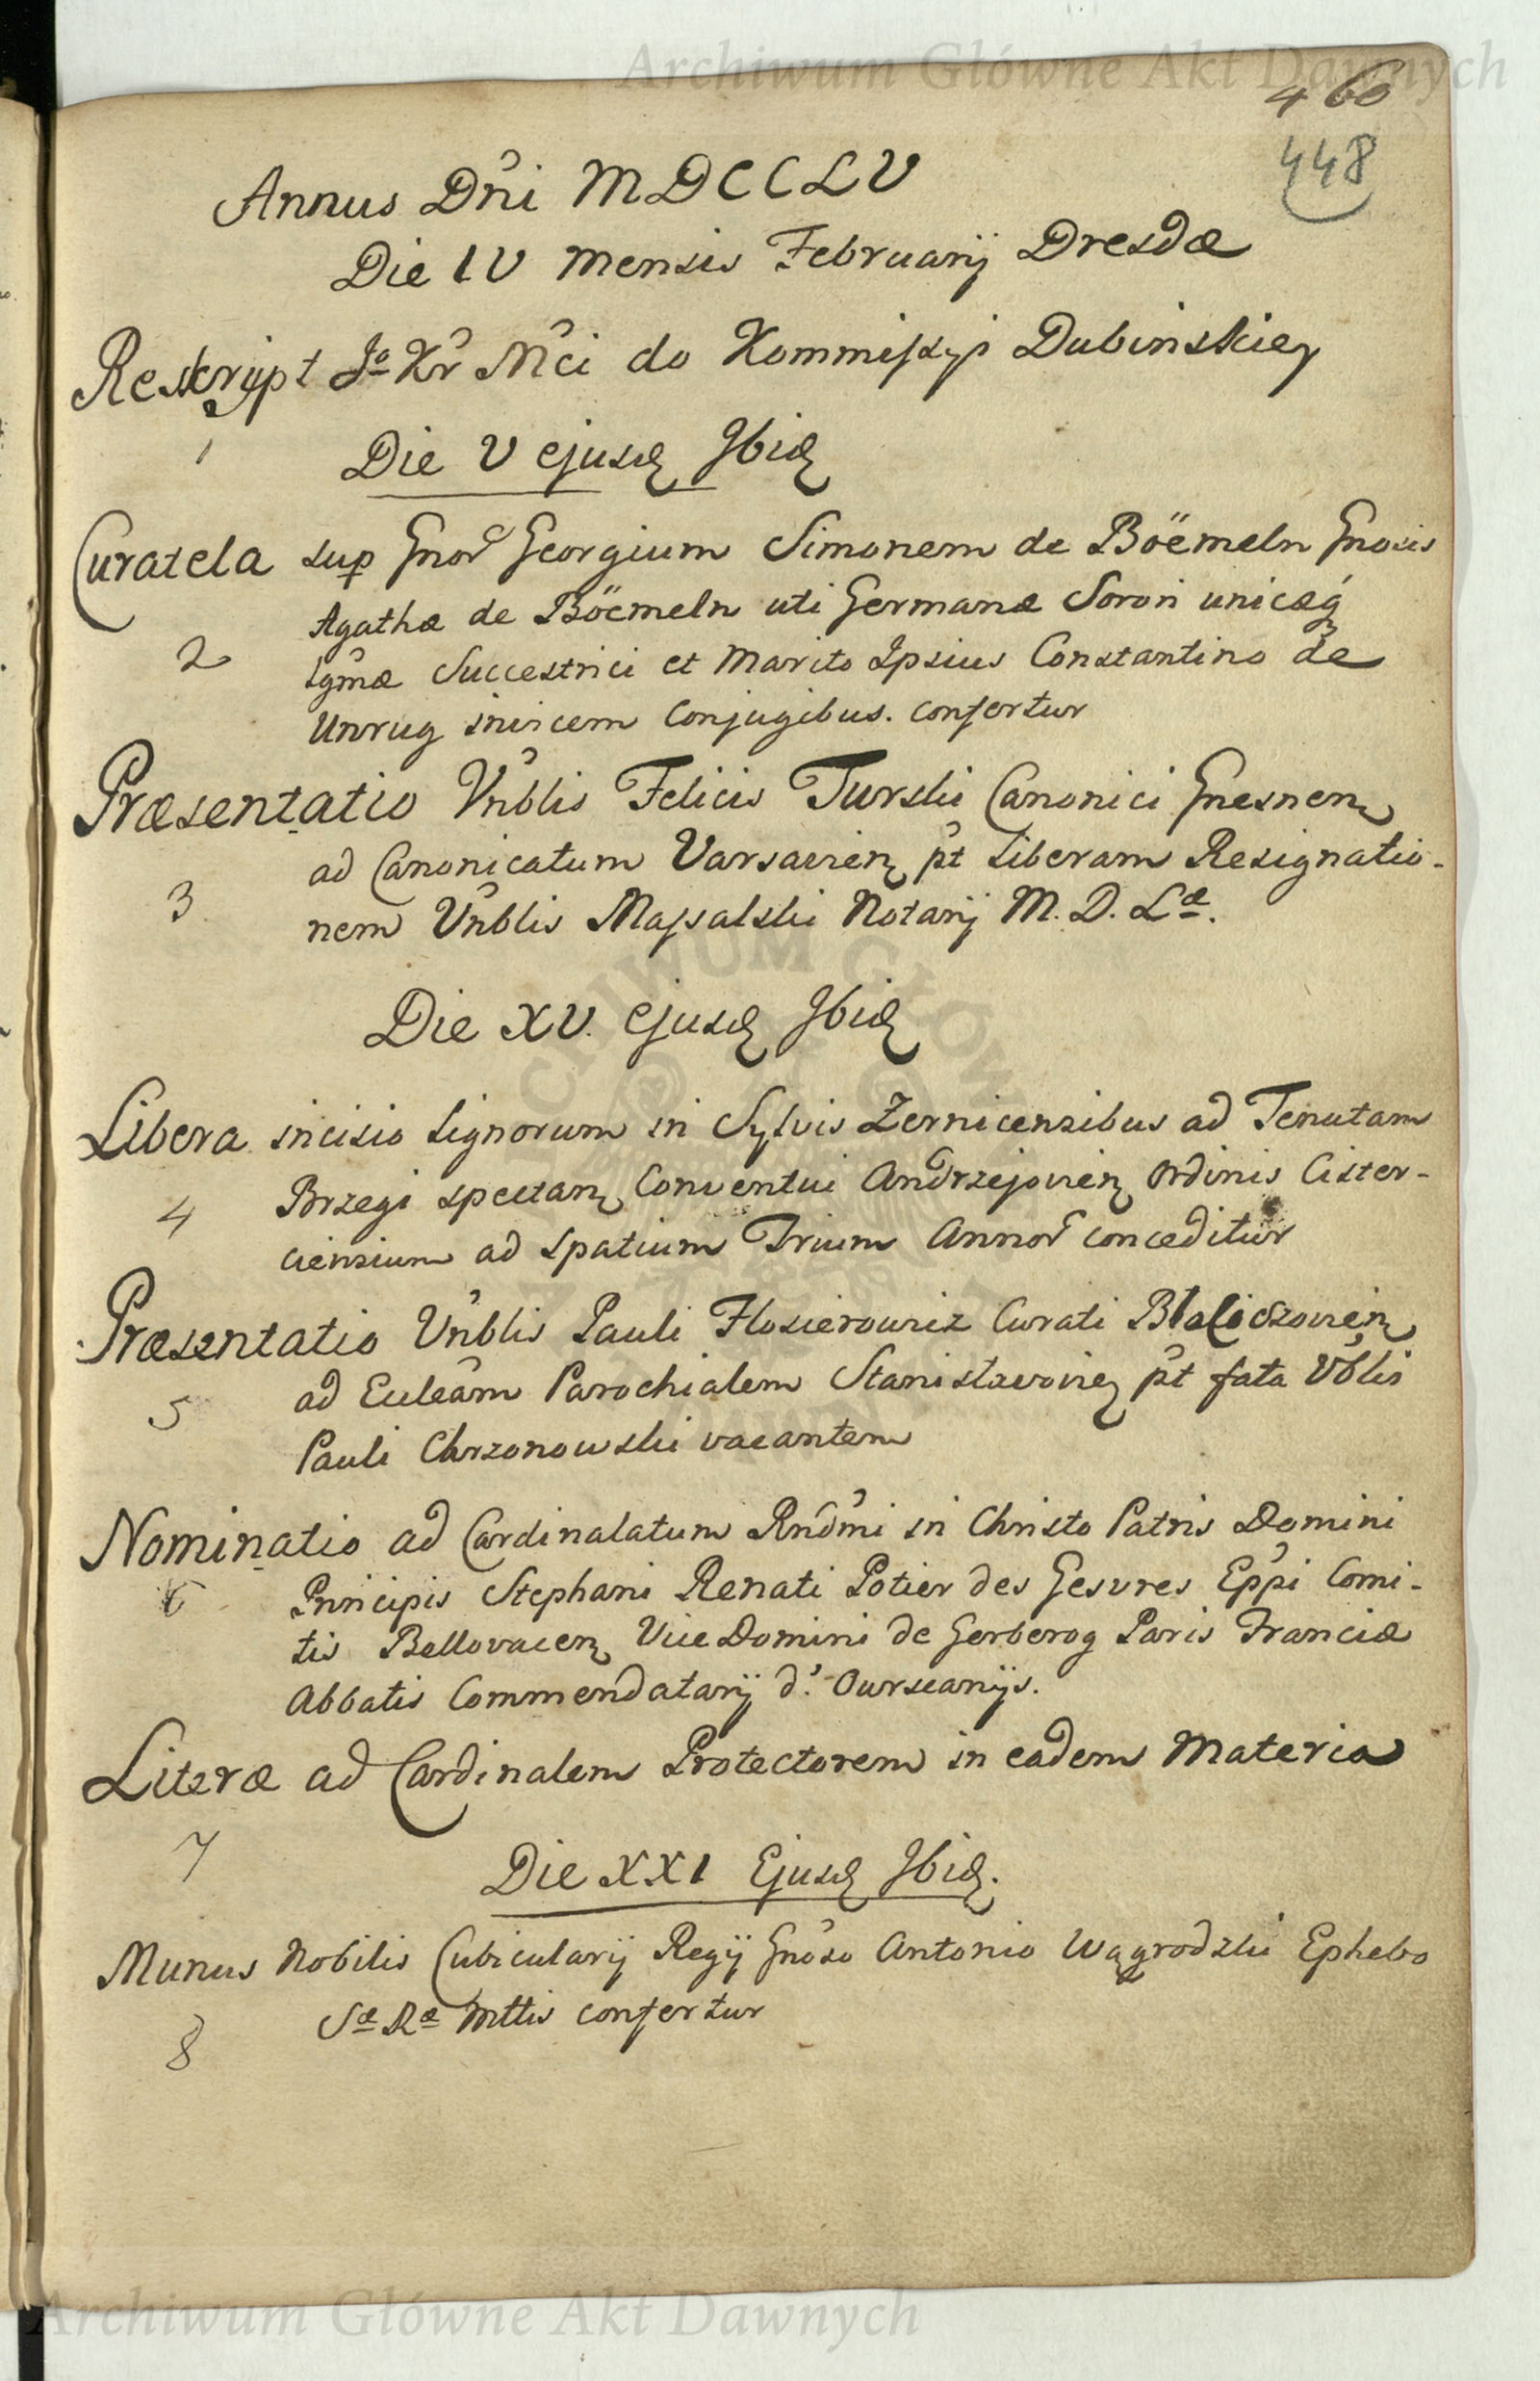 Archiwum Główne Akt Dawnych
460
448
Annus Dñi MDCCLV
Die IV Mensis Februarij Dresdæ
Reskrypt Jº Kr Mci do Kommissyi Dubinskiey
1
Die V ejusd Ibid
Curatela sup Gnor Georgium Simonem de Böemeln Gnosis
Agathæ de Böemeln uti Germanæ Sorori unicæq
2
Lgmæ Successtrici et Marito Ipsius Constantino de
Unrug invicem Conjugibus. confertur
Præsentatio Vnblis Felicis Turski Canonici Gnesnen
ad Canonicatum Varsavien pt Liberam Resignatio-
3
nem Vnblis Massalski Notarij M. D. Læ.
Die XV. ejusd Ibid
Libera incisio Lignorum in Sylvis Zernicensibus ad Tenutam
4
Brzegi spectan Conventui Andrzejovien Ordinis Cister-
ciensium ad Spatium Trium Annor conceditur
Præsentatio Vnblis Pauli Flosierowicz Curati
ad Eccleam Parochialem Stanislavovien pt fata Vblis
5
Pauli Chrzonowski vacantem
Nominatio ad Cardinalatum Rndmi in Christo Patris Domini
6
Principis Stephani Renati Potier des Gesvres Eppi Comi-
tis Bellovacen Vice Domini de Gerberog Paris Franciæ
Abbatis Commendatarij d'. Ourscanijs.
Literæ ad Cardinalem Protectorem in eadem Materia
7
Die XXI Ejusd Ibid.
Munus Nobilis Cubicularij Regij Gnoso Antonio Wągrodzki Ephebo
Sæ Ræ Mttis confertur
8
Archiwum Główne Akt Dawnych